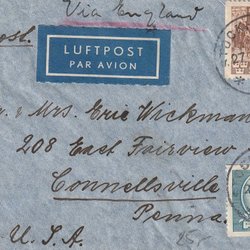 Via England
LUFTPOST
PAR AVION
& Mrs. Eric Wickman
208 East Fairview
Connellsville
Penna.
U. S. A.
25.-